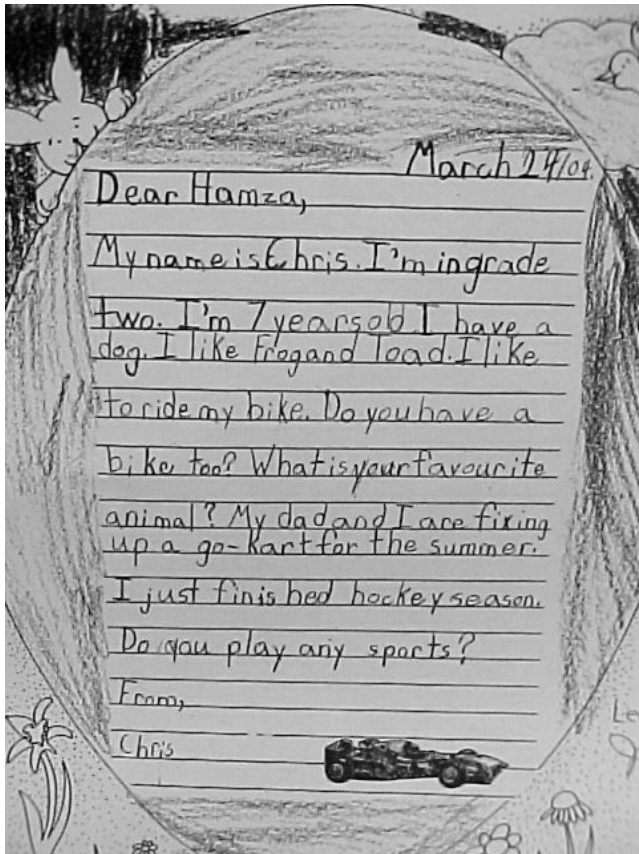 March 24/04.
Dear Hamza,
My name is Chris. I'm in grade
two. I'm 7 years old. I have a
dog. I like Frog and Toad. I like
to ride my bike. Do you have a
bike too? What is your favourite
animal? My dad and I are fixing
up a go-kart for the summer.
I just finished hockey season.
Do you play any sports?
From,
Chris